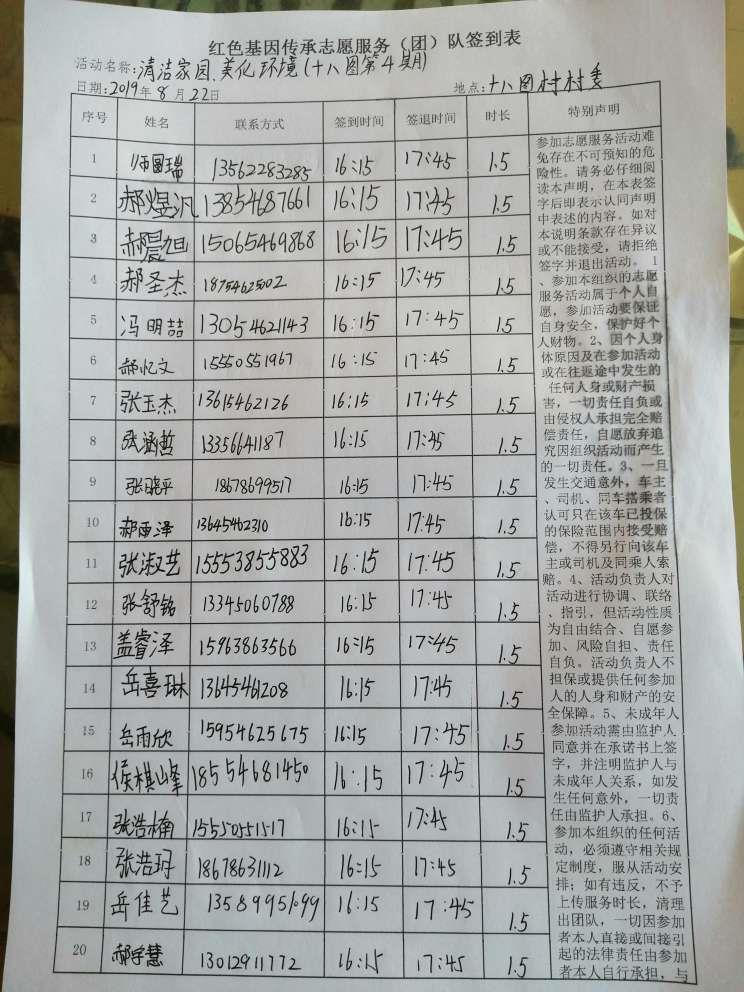 红色基因传承志愿服务（团）队签到表
活动名称：清洁家园、美化环境（十八图第4期）
日期：2019年8月22日 地点：十八图村村委
序号 姓名 联系方式 签到时间 签退时间 时长 特别声明
1 师圆瑞 13562283285 16:15 17:45 1.5
2 郝煜汎 13854687661 16:15 17:45 1.5
3 郝晨旭 15065469868 16:15 17:45 1.5
4 郝圣杰 18754625002 16:15 17:45 1.5
5 冯明喆 13054621143 16:15 17:45 1.5
6 郝忆文 15550551967 16:15 17:45 1.5
7 张玉杰 13615462126 16:15 17:45 1.5
8 张涵哲 13356641187 16:15 17:45 1.5
9 张晓平 18678699517 16:15 17:45 1.5
10 郝雨泽 13645462310 16:15 17:45 1.5
11 张淑艺 15553855883 16:15 17:45 1.5
12 张舒铭 13345060788 16:15 17:45 1.5
13 盖睿泽 15963863566 16:15 17:45 1.5
14 岳喜琳 13645461208 16:15 17:45 1.5
15 岳雨欣 15954625675 16:15 17:45 1.5
16 侯棋峰 18554681450 16:15 17:45 1.5
17 张浩楠 15550551517 16:15 17:45 1.5
18 张浩玥 18678631112 16:15 17:45 1.5
19 岳佳艺 16:15 17:45 1.5
20 郝子慧 13012911772 16:15 17:45 1.5
参加志愿服务活动难
免存在不可预知的危
险性。请务必仔细阅
读本声明，在本表签
字后即表示认同声明
中表述的内容。如对
本说明条款存在异议
或不能接受，请拒绝
签字并退出活动。 1
、参加本组织的志愿
服务活动属于个人自
愿，参加活动要保证
自身安全，保护好个
人财物。2、因个人身
体原因及在参加活动
或在往返途中发生的
任何人身或财产损
害，一切责任自负或
由侵权人承担完全赔
偿责任，自愿放弃追
究因组织活动而产生
的一切责任。3、一旦
发生交通意外，车主
、司机、同车搭乘者
认可只在该车已投保
的保险范围内接受赔
偿，不得另行向该车
主或司机及同乘人索
赔。4、活动负责人对
活动进行协调、联络
、指引，但活动性质
为自由结合、自愿参
加、风险自担、责任
自负。活动负责人不
担保或提供任何参加
人的人身和财产的安
全保障。5、未成年人
参加活动需由监护人
同意并在承诺书上签
字，并注明监护人与
未成年人关系，如发
生任何意外，一切责
任由监护人承担。6、
参加本组织的任何活
动，必须遵守相关规
定制度，服从活动安
排；如有违反，不予
上传服务时长，清理
出团队，一切因参加
者本人直接或间接引
起的法律责任由参加
者本人自行承担，与